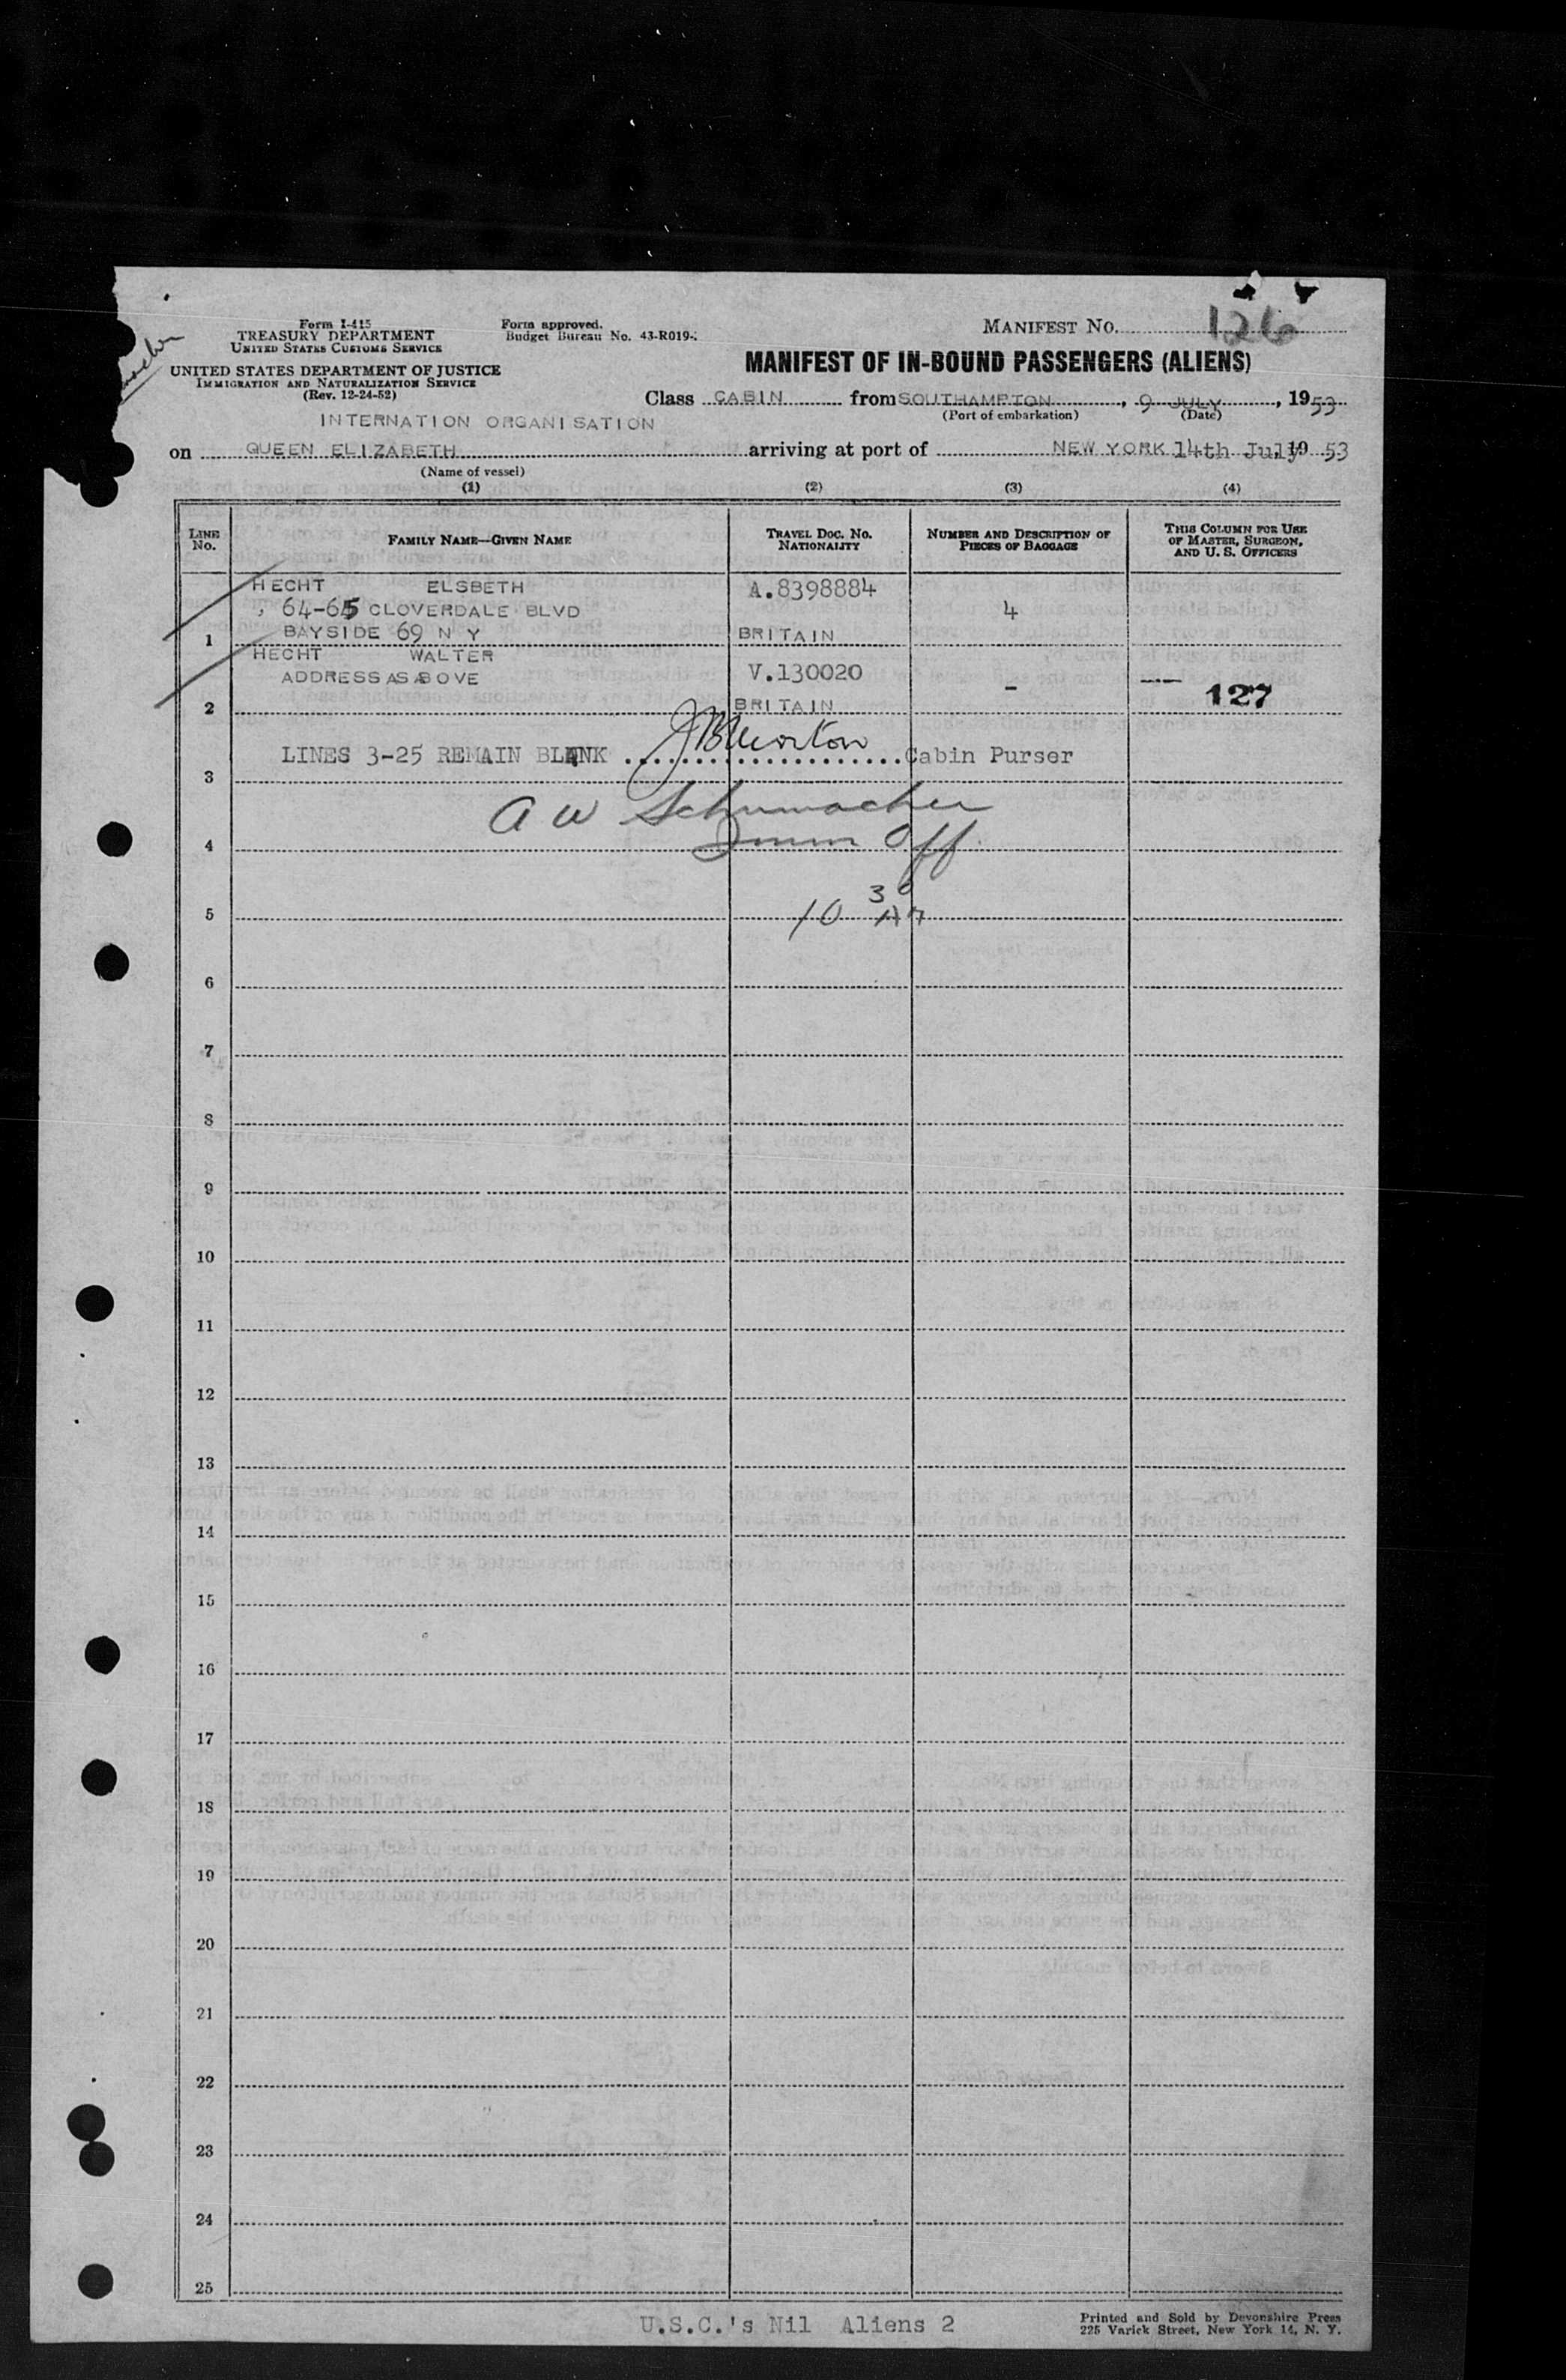 Form I-415
TREASURY DEPARTMENT
UNITED STATES CUSTOMS SERVICE
UNITED STATES DEPARTMENT OF JUSTICE
IMMIGRATION AND NATURALIZATION SERVICE
(Rev. 12-24-52)
Form approved.
Budget Bureau No. 43-R019-
MANIFEST NO. 126
MANIFEST OF IN-BOUND PASSENGERS (ALIENS)
Class CABIN from SOUTHAMPTON, 9 JULY, 1953
(Port of embarkation) (Date)
INTERNATION ORGANISATION
on QUEEN ELIZABETH arriving at port of NEW YORK 14th July 19 53
(Name of vessel)
(1) (2) (3) (4)
LINE NO. FAMILY NAME—GIVEN NAME TRAVEL DOC. NO. NATIONALITY NUMBER AND DESCRIPTION OF PIECES OF BAGGAGE THIS COLUMN FOR USE OF MASTER, SURGEON, AND U. S. OFFICERS
HECHT ELSBETH A.8398884
64-65 CLOVERDALE BLVD 4
1 BAYSIDE 69 N Y BRITAIN
HECHT WALTER
ADDRESS AS ABOVE V.130020 - 127
2 BRITAIN
LINES 3-25 REMAIN BLANK JB Morton Cabin Purser
3
A W Schumacher
4 Imm Off
5 10 30 AM
6
7
8
9
10
11
12
13
14
15
16
17
18
19
20
21
22
23
24
25
U.S.C.'s Nil Aliens 2
Printed and Sold by Devonshire Press
225 Varick Street, New York 14, N. Y.